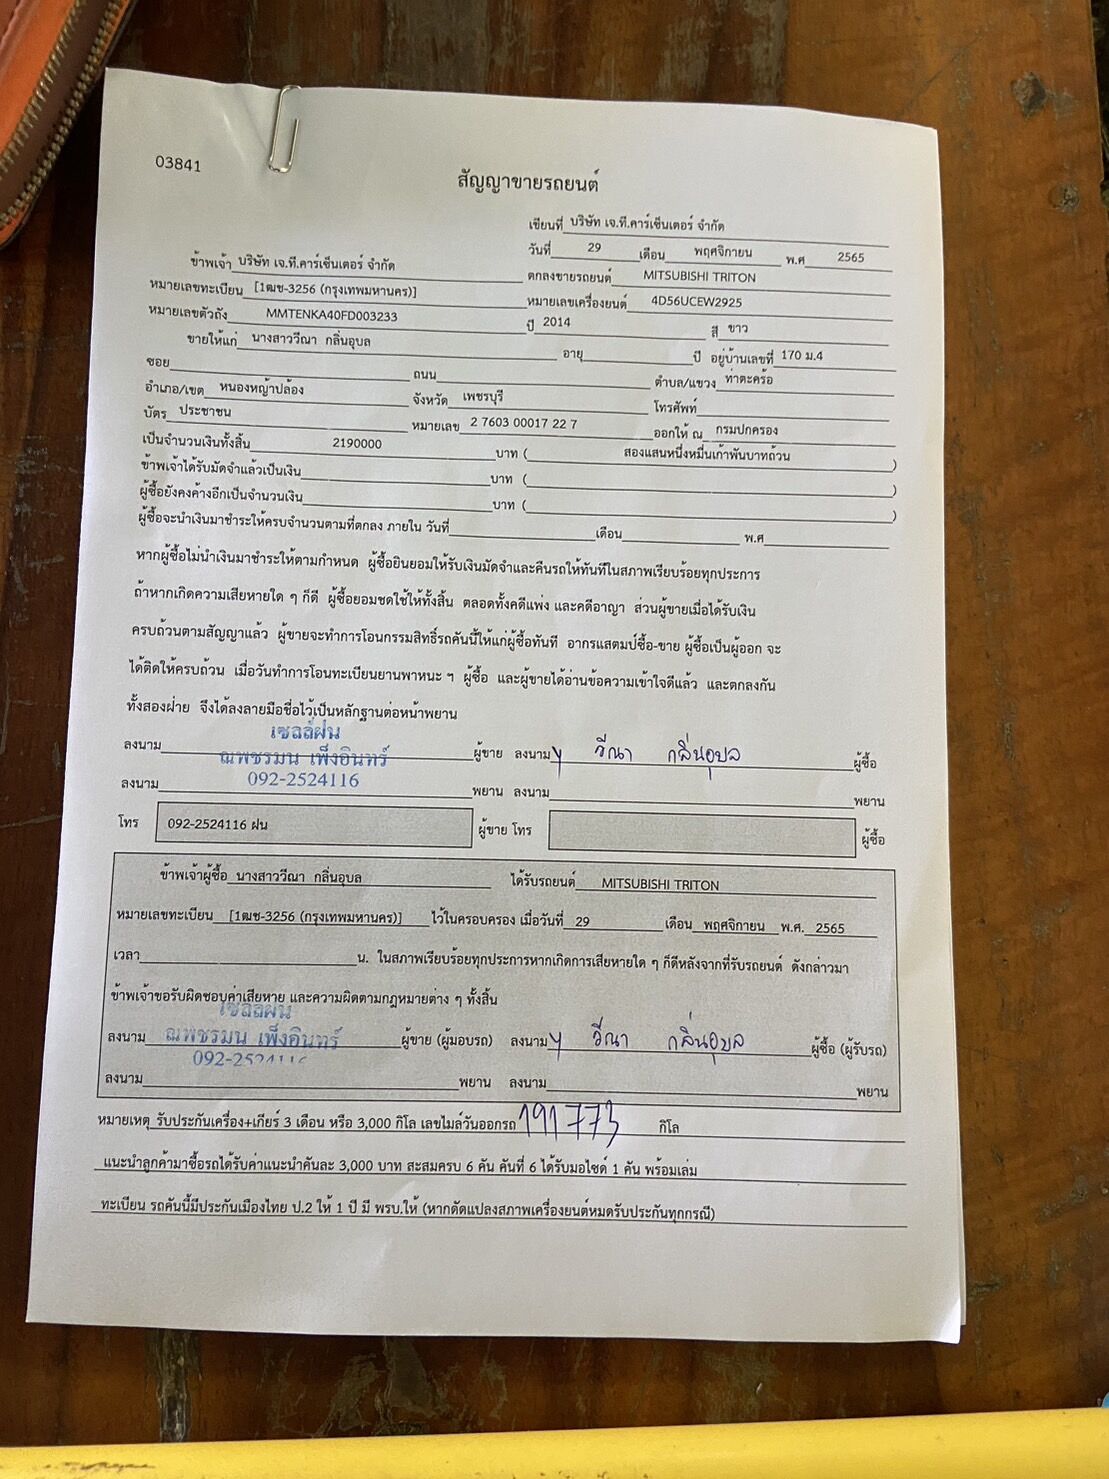 03841
สัญญาขายรถยนต์
เขียนที่ บริษัท เจ.ที.คาร์เซ็นเตอร์ จำกัด
วันที่ 29 เดือน พฤศจิกายน พ.ศ 2565
ข้าพเจ้า บริษัท เจ.ที.คาร์เซ็นเตอร์ จำกัด ตกลงขายรถยนต์ MITSUBISHI TRITON
หมายเลขทะเบียน [1ฒช-3256 (กรุงเทพมหานคร)] หมายเลขเครื่องยนต์ 4D56UCEW2925
หมายเลขตัวถัง MMTENKA40FD003233 ปี 2014 สี ขาว
ขายให้แก่ นางสาววีณา กลิ่นอุบล อายุ ปี อยู่บ้านเลขที่ 170 ม.4
ซอย ถนน ตำบล/แขวง ท่าตะคร้อ
อำเภอ/เขต หนองหญ้าปล้อง จังหวัด เพชรบุรี โทรศัพท์
บัตร ประชาชน หมายเลข 2 7603 00017 22 7 ออกให้ ณ กรมปกครอง
เป็นจำนวนเงินทั้งสิ้น 2190000 บาท ( สองแสนหนึ่งหมื่นเก้าพันบาทถ้วน )
ข้าพเจ้าได้รับมัดจำแล้วเป็นเงิน บาท ( )
ผู้ซื้อยังคงค้างอีกเป็นจำนวนเงิน บาท ( )
ผู้ซื้อจะนำเงินมาชำระให้ครบจำนวนตามที่ตกลง ภายใน วันที่ เดือน พ.ศ
หากผู้ซื้อไม่นำเงินมาชำระให้ตามกำหนด ผู้ซื้อยินยอมให้รับเงินมัดจำและคืนรถให้ทันทีในสภาพเรียบร้อยทุกประการ
ถ้าหากเกิดความเสียหายใด ๆ ก็ดี ผู้ซื้อยอมชดใช้ให้ทั้งสิ้น ตลอดทั้งคดีแพ่ง และคดีอาญา ส่วนผู้ขายเมื่อได้รับเงิน
ครบถ้วนตามสัญญาแล้ว ผู้ขายจะทำการโอนกรรมสิทธิ์รถคันนี้ให้แก่ผู้ซื้อทันที อากรแสตมป์ซื้อ-ขาย ผู้ซื้อเป็นผู้ออก จะ
ได้ติดให้ครบถ้วน เมื่อวันทำการโอนทะเบียนยานพาหนะ ฯ ผู้ซื้อ และผู้ขายได้อ่านข้อความเข้าใจดีแล้ว และตกลงกัน
ทั้งสองฝ่าย จึงได้ลงลายมือชื่อไว้เป็นหลักฐานต่อหน้าพยาน
เซลล์ฝน
ลงนาม ณพชรมน เพ็งอินทร์ ผู้ขาย ลงนาม วีณา กลิ่นอุบล ผู้ซื้อ
092-2524116
ลงนาม พยาน ลงนาม พยาน
โทร 092-2524116 ฝน ผู้ขาย โทร ผู้ซื้อ
ข้าพเจ้าผู้ซื้อ นางสาววีณา กลิ่นอุบล ได้รับรถยนต์ MITSUBISHI TRITON
หมายเลขทะเบียน [1ฒช-3256 (กรุงเทพมหานคร)] ไว้ในครอบครอง เมื่อวันที่ 29 เดือน พฤศจิกายน พ.ศ. 2565
เวลา น. ในสภาพเรียบร้อยทุกประการหากเกิดการเสียหายใด ๆ ก็ดีหลังจากที่รับรถยนต์ ดังกล่าวมา
ข้าพเจ้าขอรับผิดชอบค่าเสียหาย และความผิดตามกฎหมายต่าง ๆ ทั้งสิ้น
เซลล์ฝน
ลงนาม ณพชรมน เพ็งอินทร์ ผู้ขาย (ผู้มอบรถ) ลงนาม วีณา กลิ่นอุบล ผู้ซื้อ (ผู้รับรถ)
092-2524116
ลงนาม พยาน ลงนาม พยาน
หมายเหตุ รับประกันเครื่อง+เกียร์ 3 เดือน หรือ 3,000 กิโล เลขไมล์วันออกรถ 191773 กิโล
แนะนำลูกค้ามาซื้อรถได้รับค่าแนะนำคันละ 3,000 บาท สะสมครบ 6 คัน คันที่ 6 ได้รับมอไซด์ 1 คัน พร้อมเล่ม
ทะเบียน รถคันนี้มีประกันเมืองไทย ป.2 ให้ 1 ปี มี พรบ.ให้ (หากดัดแปลงสภาพเครื่องยนต์หมดรับประกันทุกกรณี)